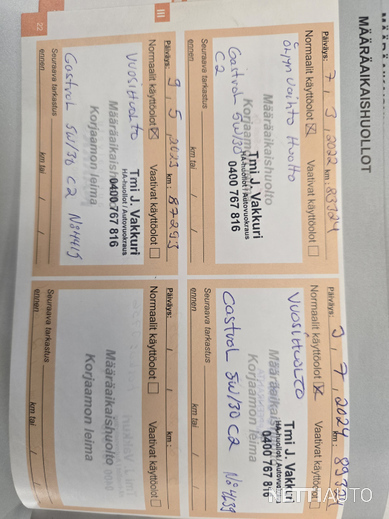 MÄÄRÄAIKAISHUOLLOT
Päiväys: 7, 3, 2022 km: 83924
Normaalit käyttöolot ☒ Vaativat käyttöolot ☐
Öljyn vaihto Huolto
Määräaikaishuolto
Korjaamon leima
Tmi J. Vakkuri
HA-huollot / Autovuokraus
0400 767 816
Castrol 5W/30
C2
Seuraava tarkastus
ennen / / km tai
Päiväys: 3, 7, 2024
Normaalit käyttöolot ☒ Vaativat käyttöolot ☐
Vuosihuolto
Määräaikaishuolto
Korjaamon leima
Tmi J. Vakkuri
HA-huollot / Autovuokraus
0400 767 816
Castrol 5W/30 C2 N:4639
Seuraava tarkastus
ennen / / km tai
III
Päiväys: 9, 5, 2023 km: 87293
Normaalit käyttöolot ☒ Vaativat käyttöolot ☐
Vuosihuolto
Tmi J. Vakkuri
HA-huollot / Autovuokraus
Määräaikaishuolto
0400 767 816
Korjaamon leima
Castrol 5W/30 C2 N:4419
Seuraava tarkastus
ennen / / km tai
22
Päiväys: / / km:
Normaalit käyttöolot ☐ Vaativat käyttöolot ☐
Määräaikaishuolto
Korjaamon leima
Seuraava tarkastus
ennen / / km tai
NETTIAUTO